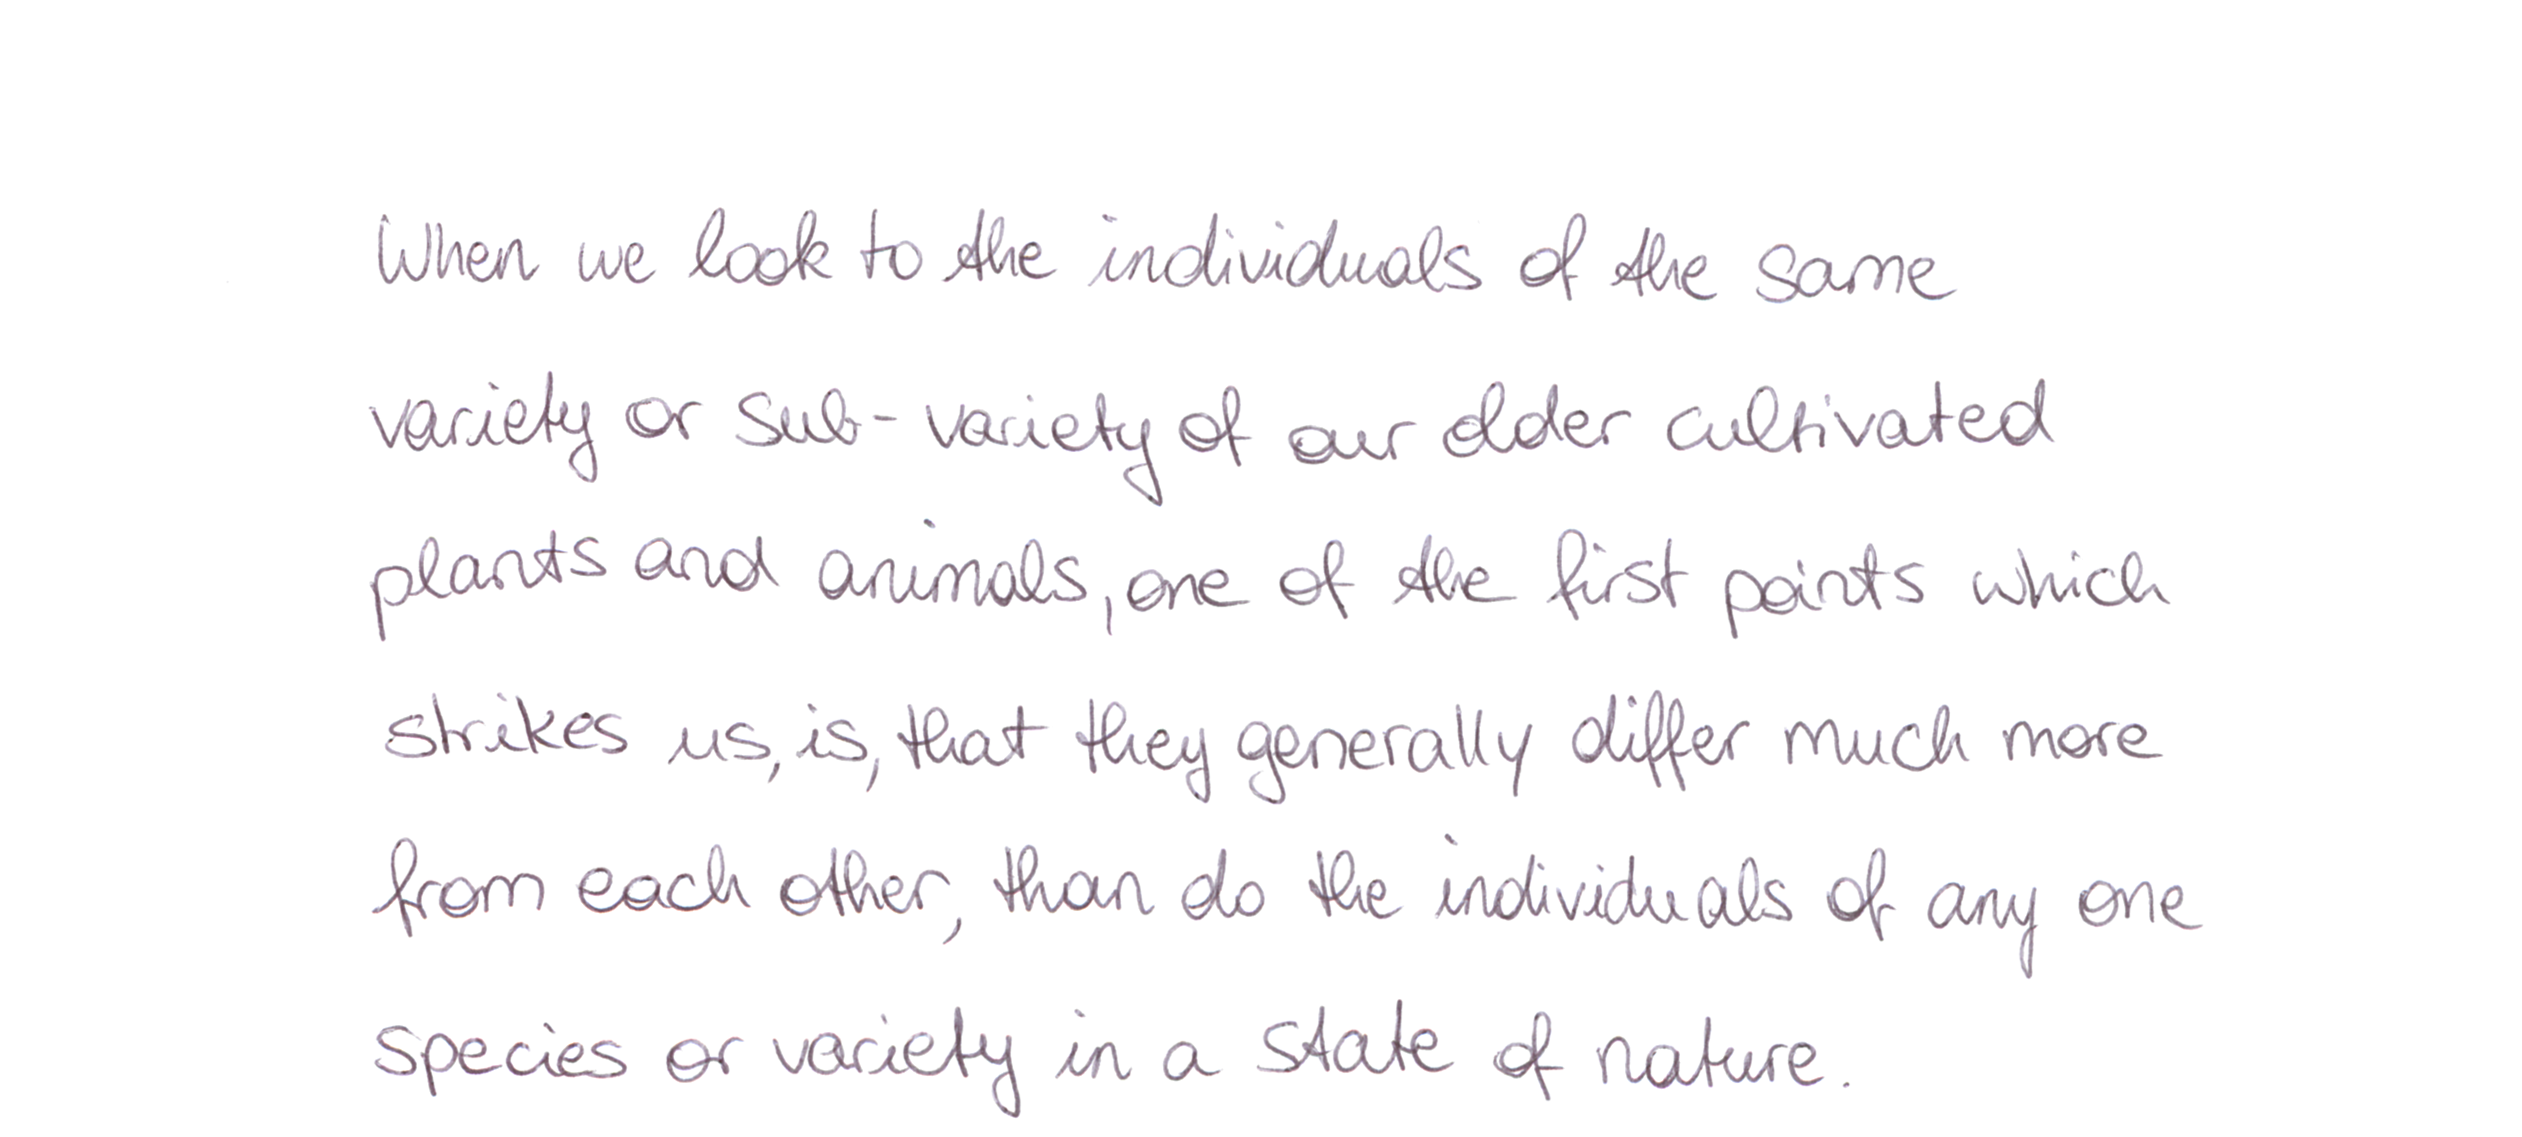 When we look to the individuals of the same
variety or sub-variety of our older cultivated
plants and animals, one of the first points which
strikes us, is, that they generally differ much more
from each other, than do the individuals of any one
species or variety in a state of nature.